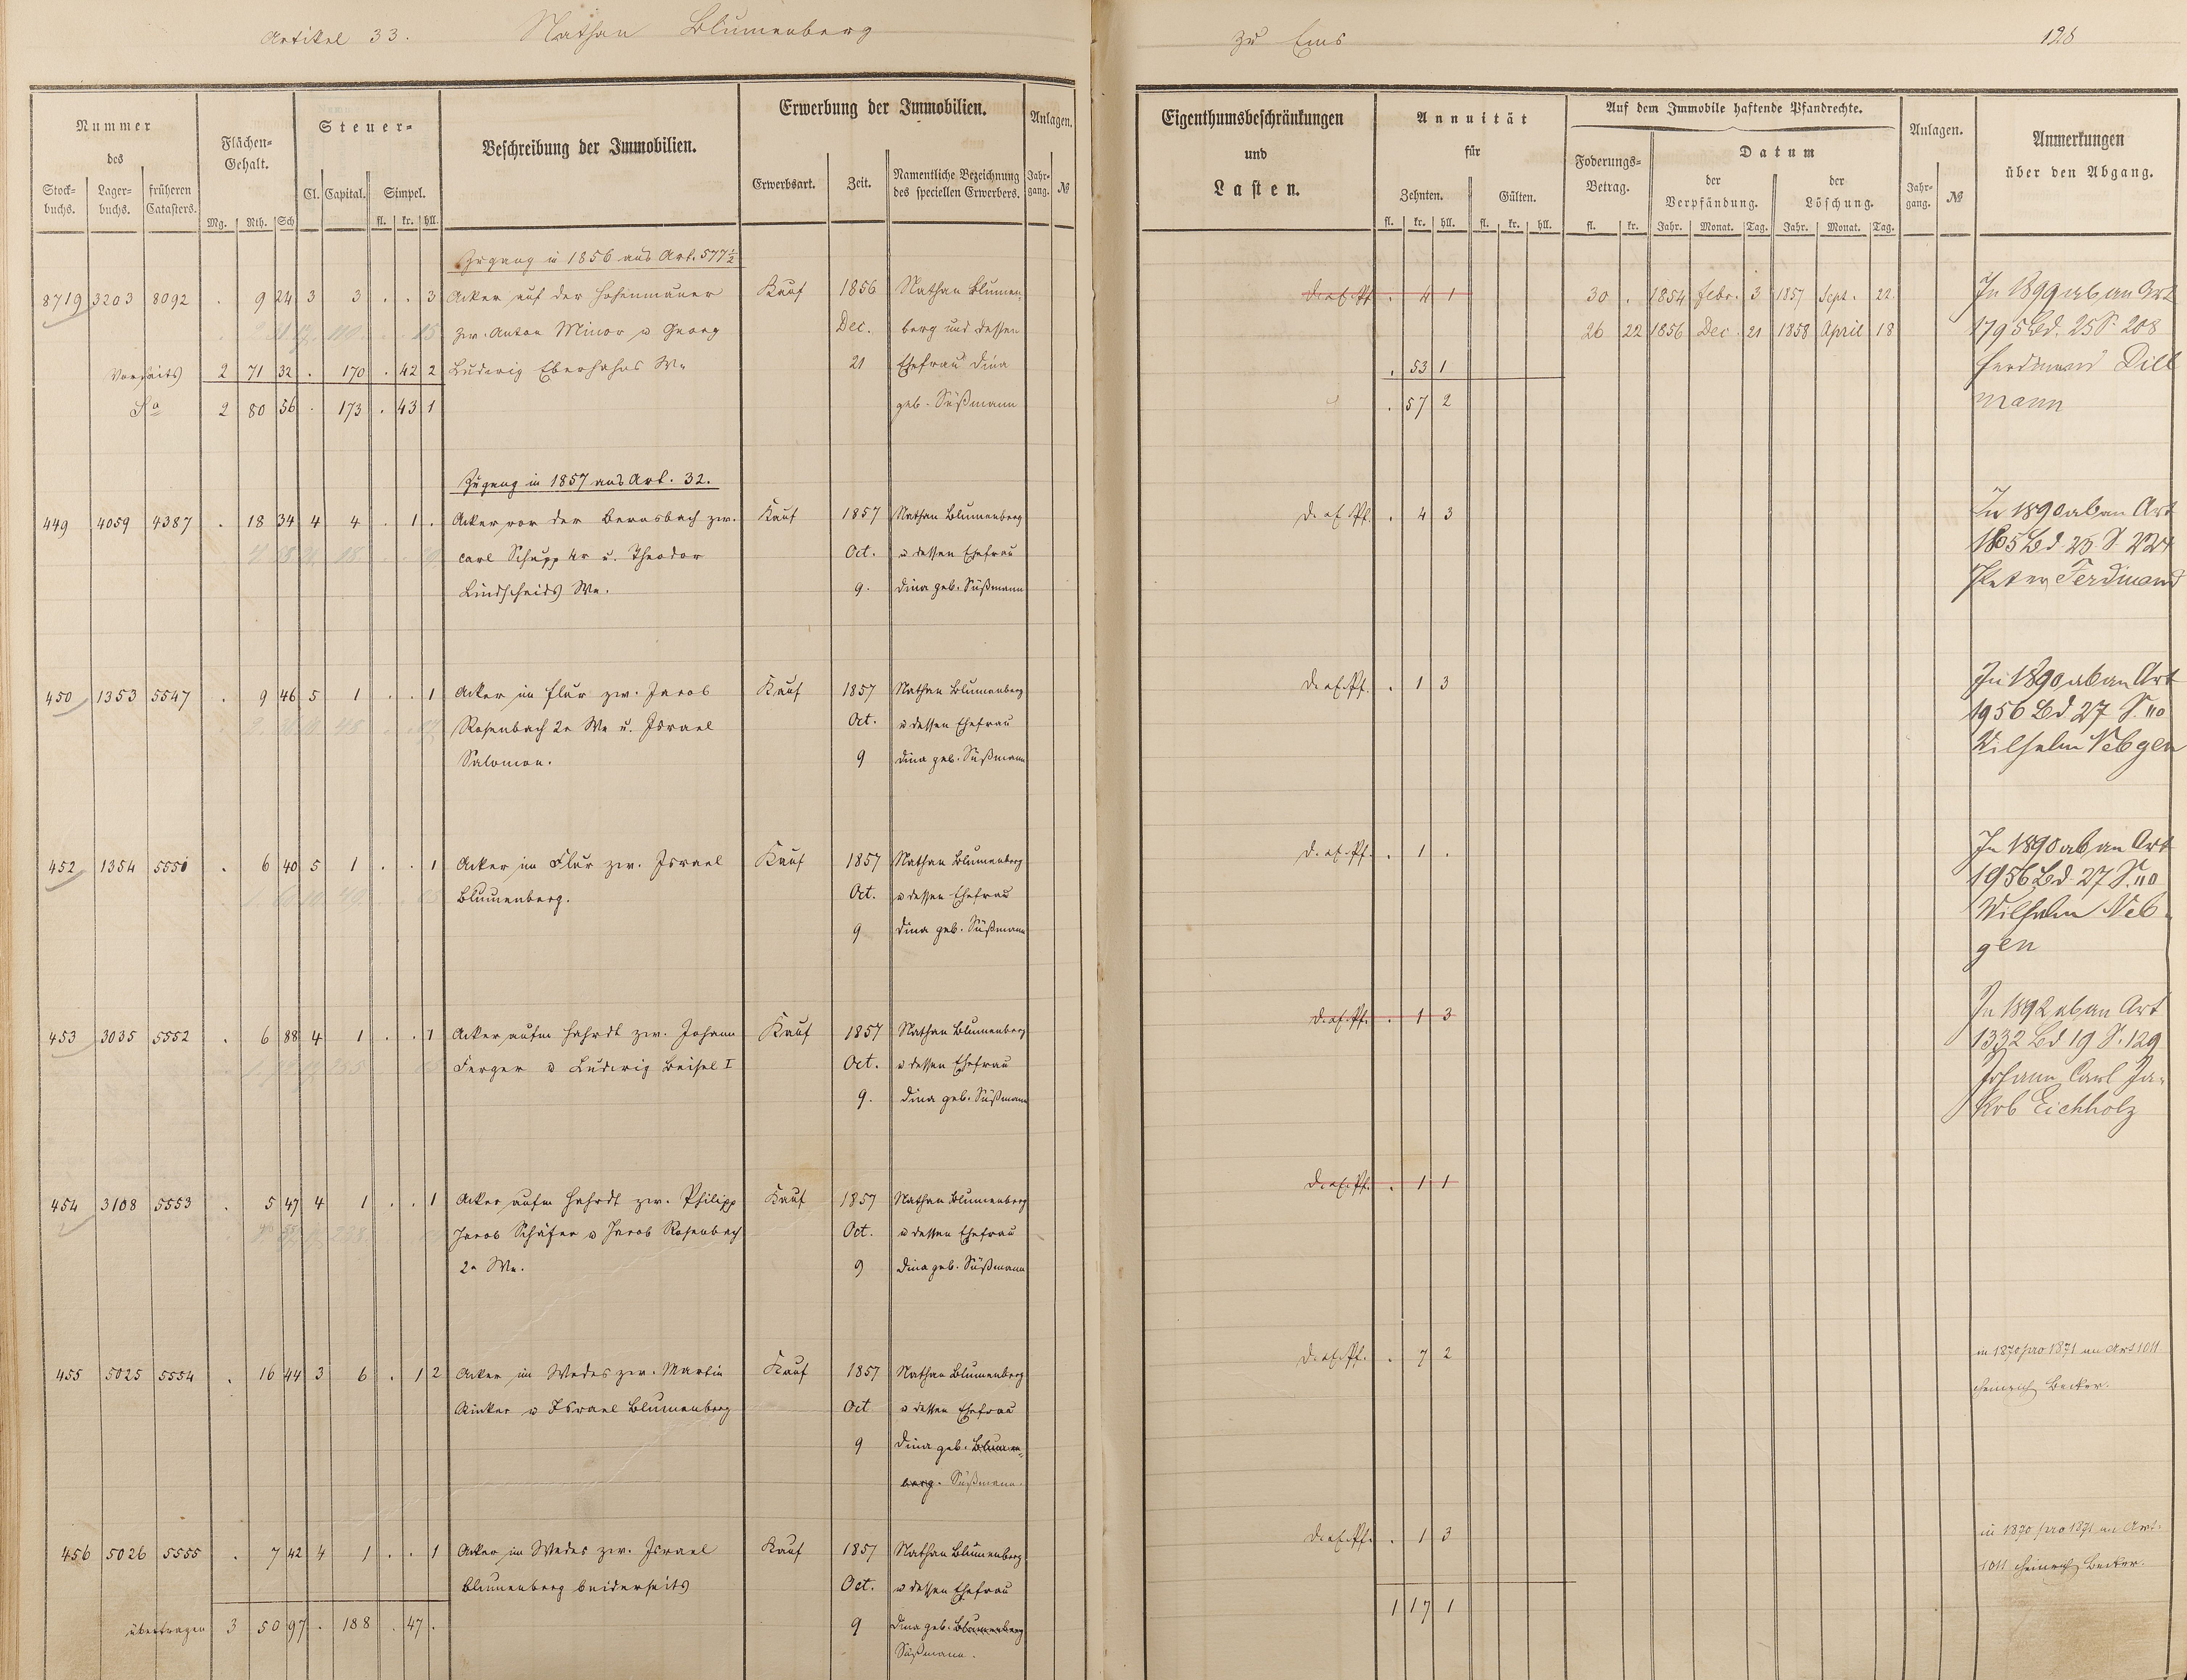 Artikel 33. Nathan Blumenberg
zu Ems 128
Nummer des
Stockbuchs. Lagerbuchs. früheren Catasters.
Flächen-Gehalt.
Mg. Rth. Sch
Steuer-
Cl. Capital. Simpel.
fl. kr. hll.
Beschreibung der Immobilien.
Erwerbung der Immobilien.
Erwerbsart. Zeit. Namentliche Bezeichnung des speciellen Erwerbers.
Anlagen.
Jahrgang. №
Eigenthumsbeschränkungen
und
Lasten.
Annuität
für
Zehnten. Gülten.
fl. kr. hll. fl. kr. hll.
Auf dem Immobile haftende Pfandrechte.
Foderungs-Betrag.
fl. kr.
Datum
der Verpfändung. der Löschung.
Jahr. Monat. Tag. Jahr. Monat. Tag.
Anlagen.
Jahrgang. №
Anmerkungen
über den Abgang.
Zugang in 1856 aus Art. 577 1/2
8719 3203 8092 . 9 24 3 3 . . 3 Acker auf der Hohenmauer Kauf 1856 Nathan Blumen- . 4 1 30 . 1854 Febr. 3 1857 Sept. 22. In 1899 ab an Art
zw. Anton Minor u Georg Dec. berg und dessen 26 22 1856 Dec. 21 1858 April 18 1795 Bd. 25 S. 208
Vorseits 2 71 32 . 170 . 42 2 Ludwig Eberhahns We 21 Ehefrau Dina . 53 1 Ferdinand Dill
Sa 2 80 56 . 173 . 43 1 geb. Süßmann . 57 2 mann
Zugang in 1857 aus Art. 32.
449 4059 4387 . 18 34 4 4 . 1 . Acker vor der Bernsbach zw. Kauf 1857 Nathan Blumenberg . 4 3 In 1890 ab an Art
Carl Schupp 4r u. Theodor Oct. u dessen Ehefrau Bd. 25 S. 224
Lindscheids We. 9. Dina geb. Süßmann Peter Ferdinand
450 1353 5547 . 9 46 5 1 . . 1 Acker im Flur zw. Jacob Kauf 1857 Nathan Blumenberg . 1 3 In 1890 ab an Art
Rosenbach 2r We u. Israel Oct. u dessen Ehefrau 1956 Bd 27 S. 110
Salomon. 9 Dina geb. Süßmann Wilhelm Nebgen
452 1354 5551 . 6 40 5 1 . . 1 Acker im Flur zw. Israel Kauf 1857 Nathan Blumenberg . 1 . In 1890 ab an Art
Blumenberg. Oct. u dessen Ehefrau 1956 Bd 27 S. 110
9 Dina geb. Süßmann Wilhelm Neb-
gen
453 3035 5552 . 6 88 4 1 . . 1 Acker aufm Hahrdt zw. Johann Kauf 1857 Nathan Blumenberg . 1 3 In 1892 ab an Art
Ferger u Ludwig Beisel I Oct. u dessen Ehefrau 1332 Bd 19 S. 129
9. Dina geb. Süßmann Johann Carl Ja-
kob Eichholz
454 3108 5553 . 5 47 4 1 . . 1 Acker aufm Hahrdt zw. Philipp Kauf 1857 Nathan Blumenberg . 1 1
Jacob Schäfer u Jacob Rosenbach Oct. u dessen Ehefrau
2r We. 9 Dina geb. Süßmann
455 5025 5554 . 16 44 3 6 . 1 2 Acker im Wedes zw. Martin Kauf 1857 Nathan Blumenberg . 7 2 in 1870 pro 1871 an Art 1011
Rinker u Israel Blumenberg Oct u dessen Ehefrau Heinrich Becker.
9 Dina geb. Blumen-
berg. Süßmann.
456 5026 5555 . 7 42 4 1 . . 1 Acker im Wedes zw. Israel Kauf 1857 Nathan Blumenberg . 1 3 in 1870 pro 1871 an Art.
Blumenberg beiderseits Oct. u dessen Ehefrau 1011 Heinrich Becker.
übertragen 3 50 97 . 188 . 47 . 9 Dina geb. Blumenberg 1 17 1
Süßmann.